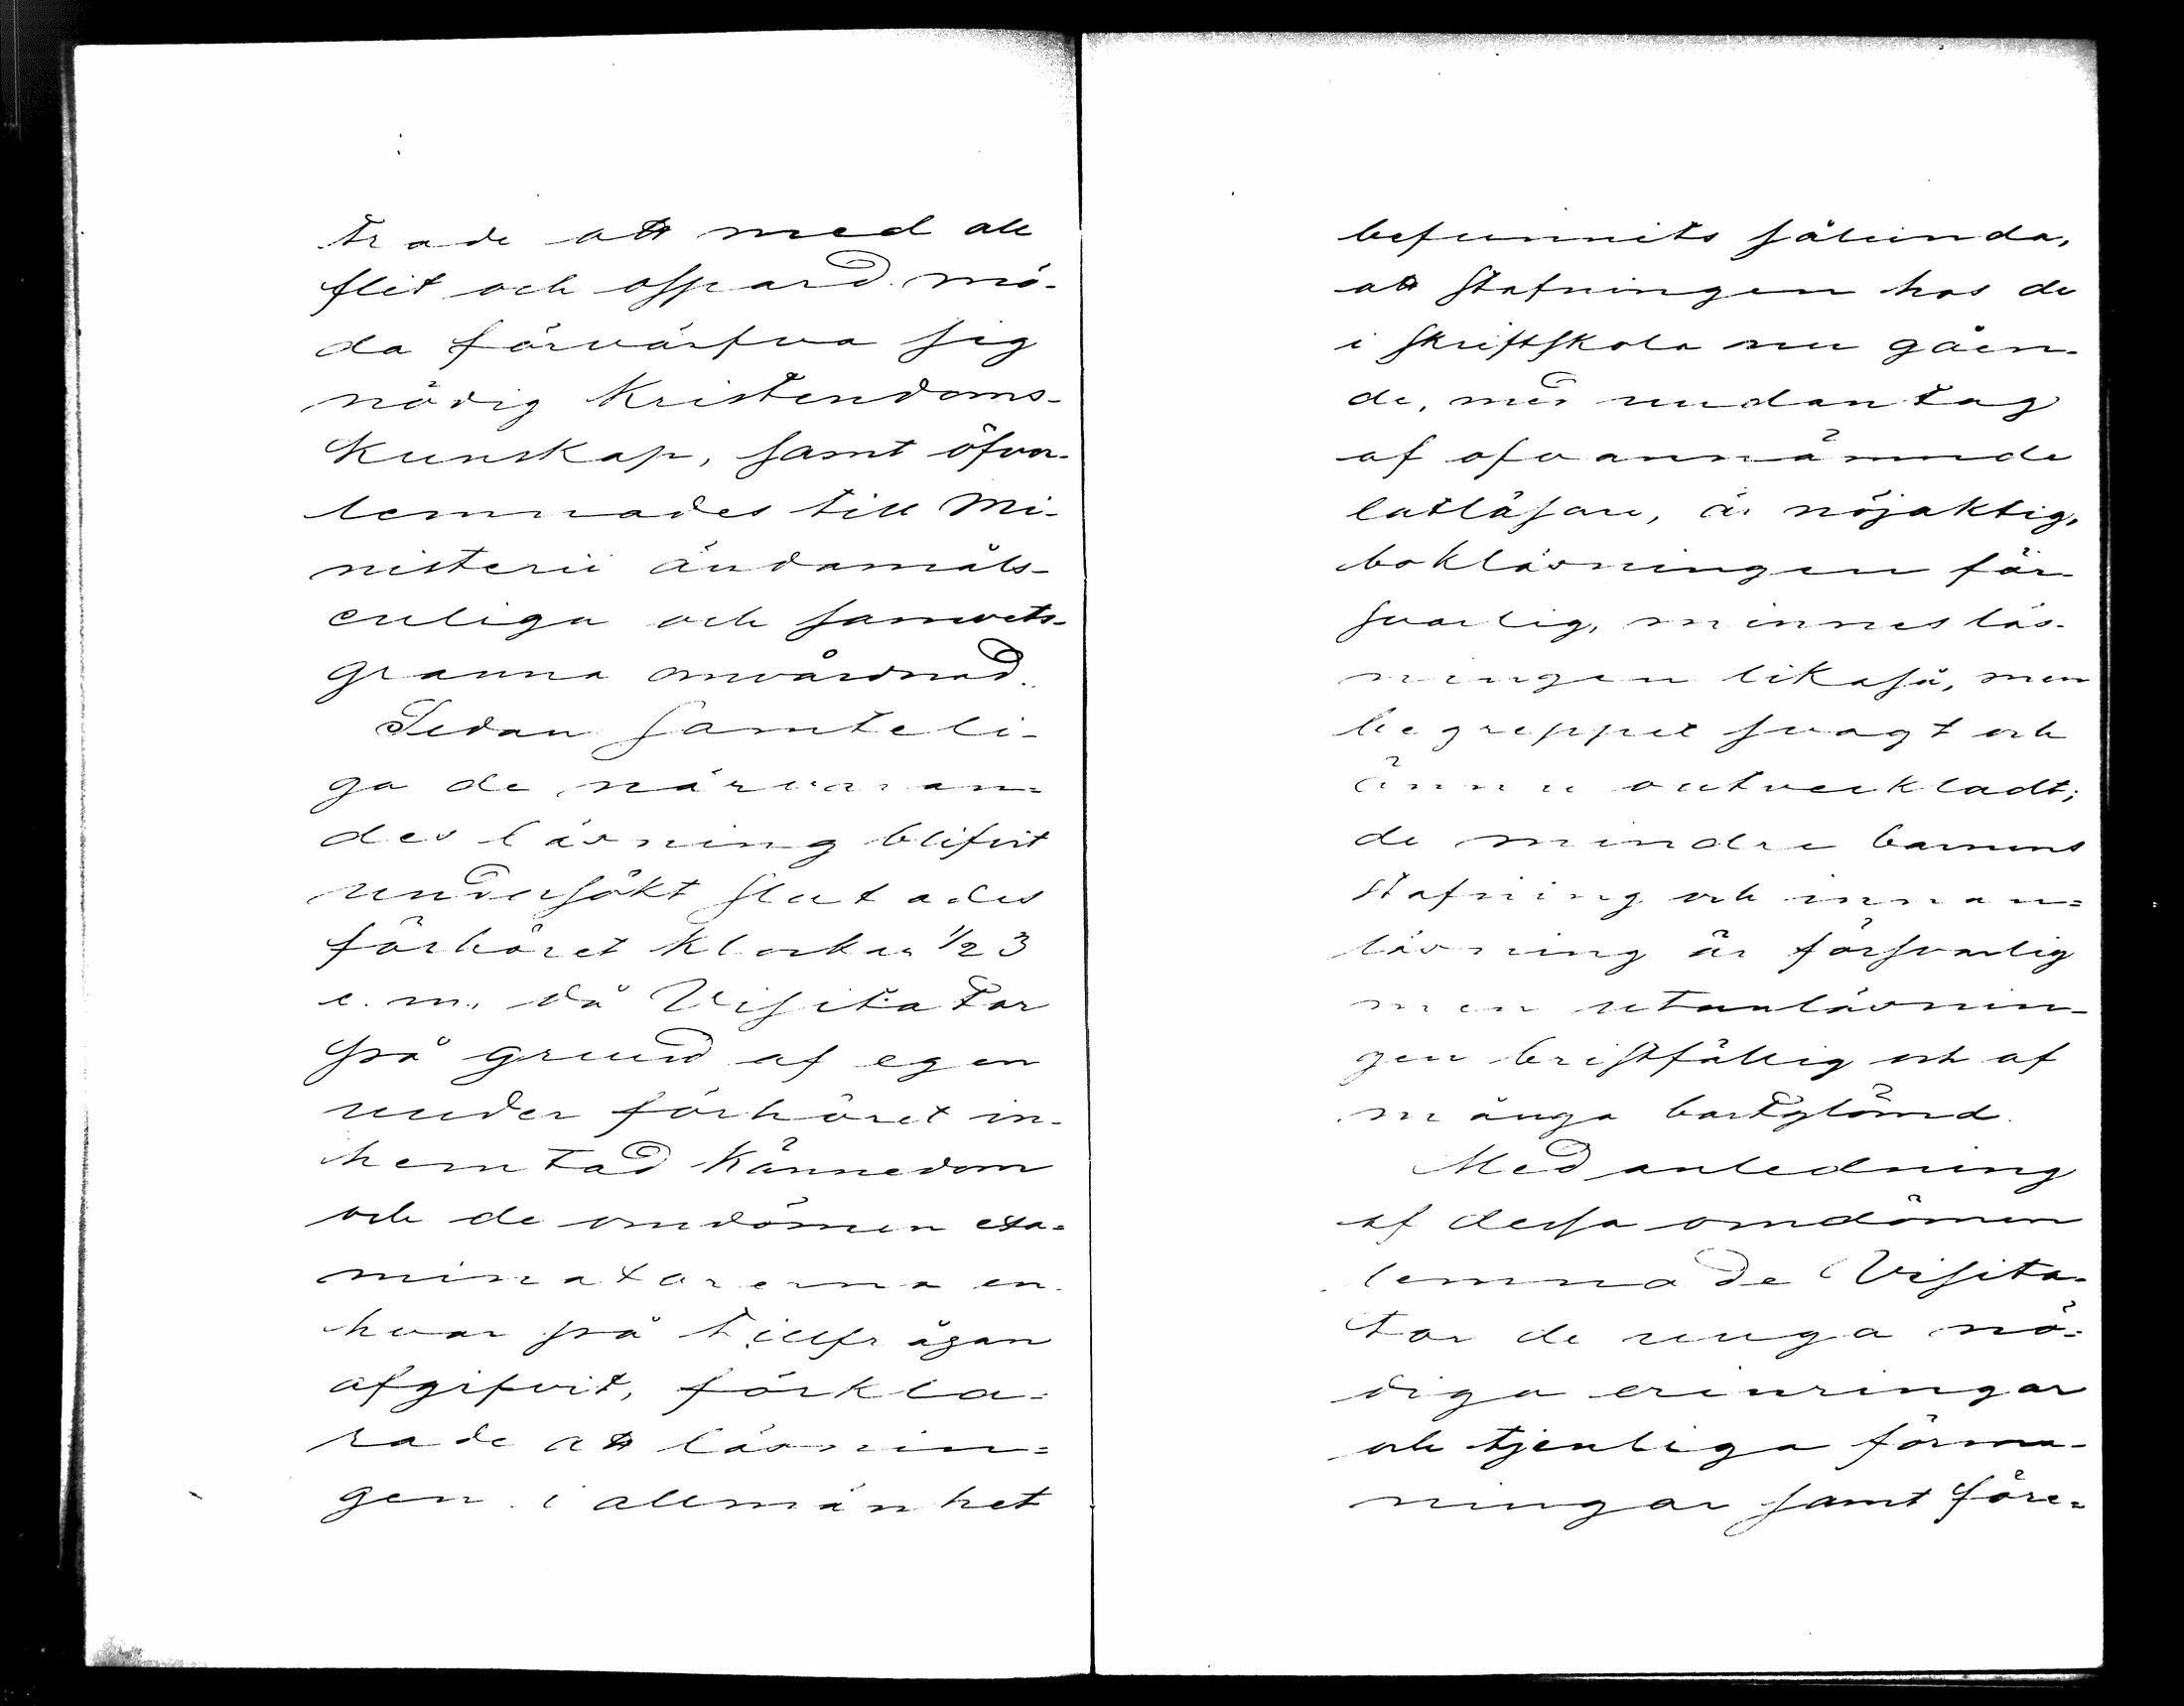 trade att med all
flit och ospard mö-
da förvärfva sig
nödig Kristendoms-
kunskap, samt öfver-
lemnades till Mi-
nisterii ändamåls-
enliga och samvets-
granna omvårdnad.
Sedan samteli-
ga de närvaran-
des läsning blifvit
undersökt slutades
förhöret klockan 1/2 3
e. m., då Visitator
på grund af egen
under förhöret in-
hemtad kännedom
och de omdömen exa-
minatorerna en-
hvar på tillfrågan
afgifvit, förkla-
rade att läsnin-
gen i allmänhet
befunnits sålunda,
att stafningen hos de
i skriftskola nu gåen-
de, med undantag
af ofvannämnde
latläsare, är nöjaktig,
bokläsningen för-
svarlig, minnesläs-
ningen likaså, men
begreppet svagt och
ännu outveckladt;
de mindre barnens
stafning och innan-
läsning är försvarlig
men utanläsnin-
gen bristfällig och af
många bortglömd.
Med anledning
af dessa omdömen
lemnade Visita-
tor de unga nö-
diga erinringar
och tjenliga förma-
ningar samt före-